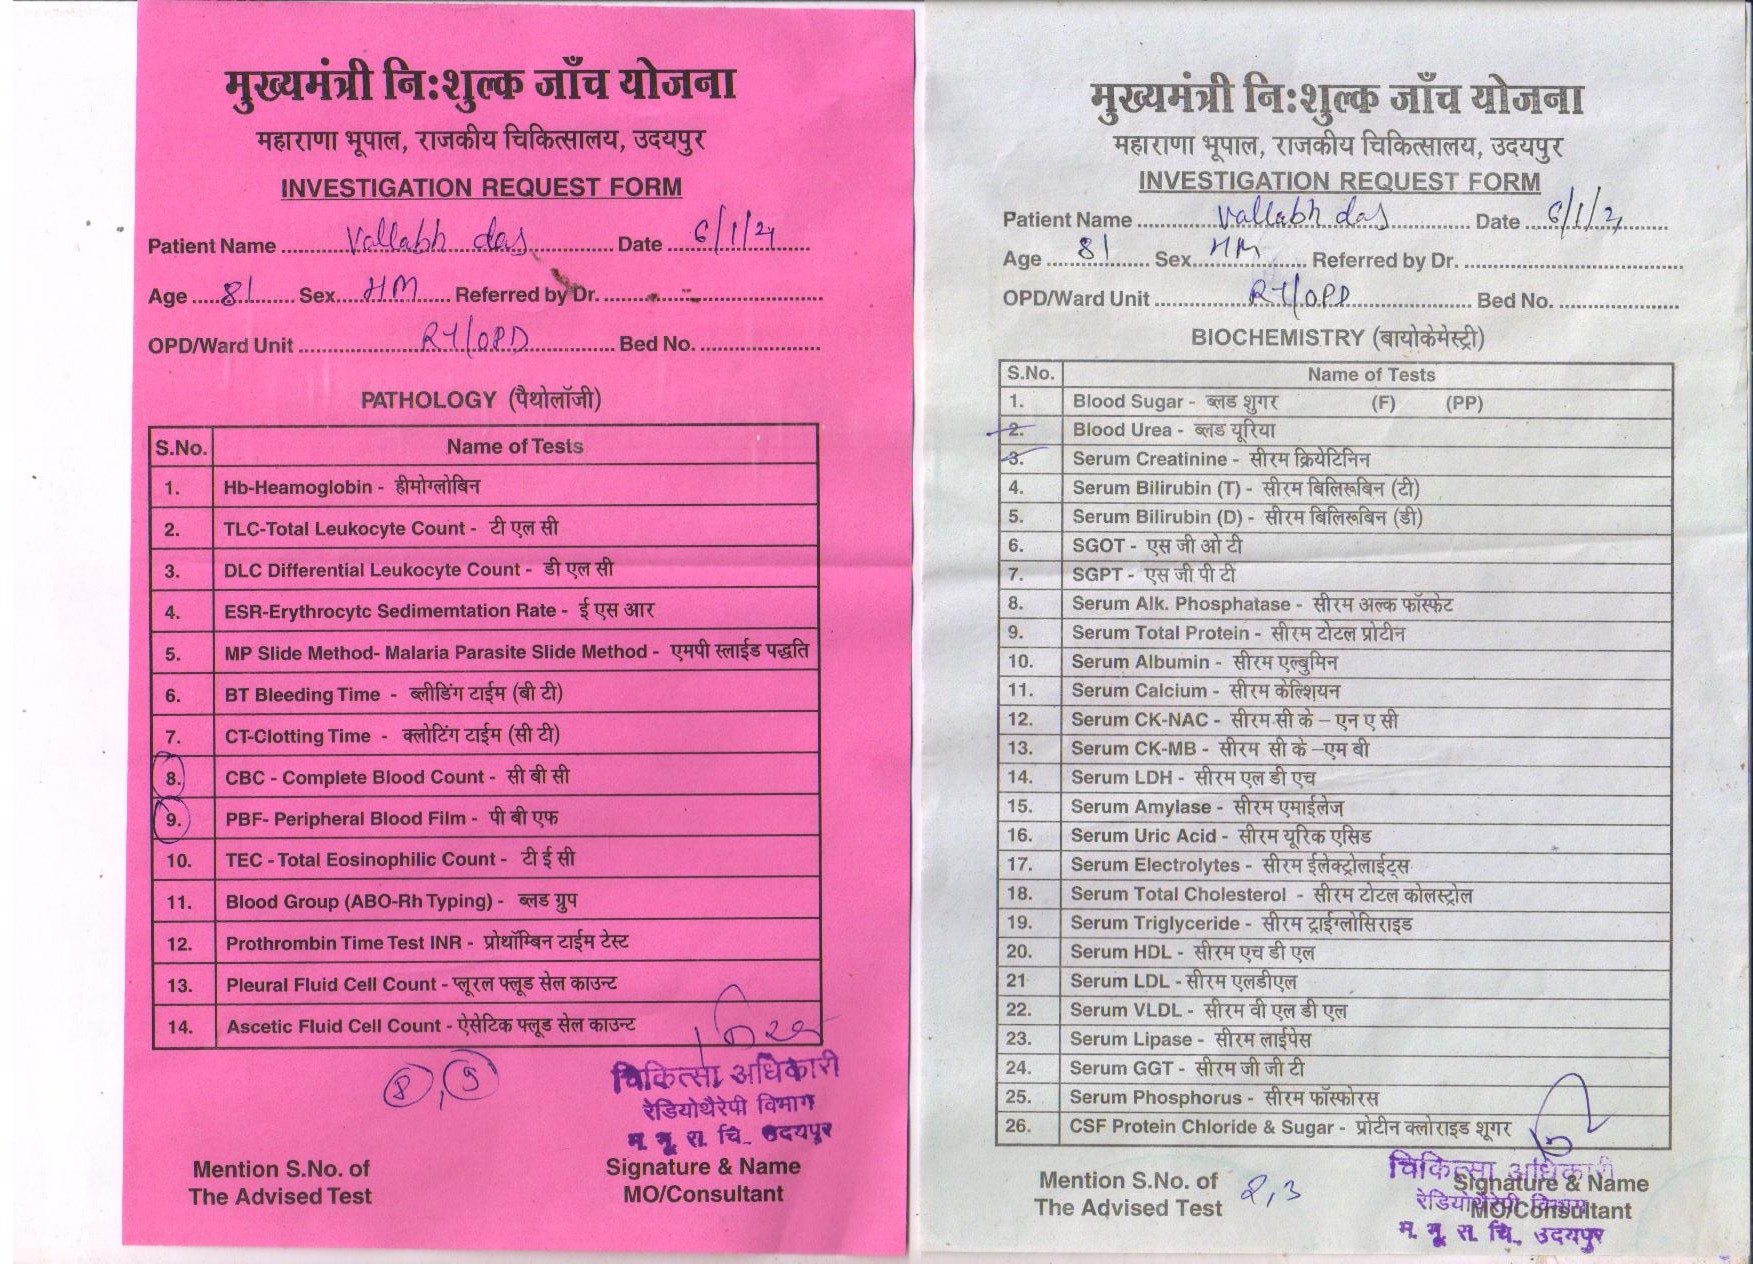 मुख्यमंत्री नि:शुल्क जाँच योजना
महाराणा भूपाल, राजकीय चिकित्सालय, उदयपुर
INVESTIGATION REQUEST FORM
Patient Name Vallabh das Date 6/1/21
Age 81 Sex HM Referred by Dr.
OPD/Ward Unit RT/OPD Bed No.
PATHOLOGY (पैथोलॉजी)
S.No. Name of Tests
1. Hb-Heamoglobin - हीमोग्लोबिन
2. TLC-Total Leukocyte Count - टी एल सी
3. DLC Differential Leukocyte Count - डी एल सी
4. ESR-Erythrocytc Sedimemtation Rate - ई एस आर
5. MP Slide Method- Malaria Parasite Slide Method - एमपी स्लाईड पद्धति
6. BT Bleeding Time - ब्लीडिंग टाईम (बी टी)
7. CT-Clotting Time - क्लोटिंग टाईम (सी टी)
8. CBC - Complete Blood Count - सी बी सी
9. PBF- Peripheral Blood Film - पी बी एफ
10. TEC - Total Eosinophilic Count - टी ई सी
11. Blood Group (ABO-Rh Typing) - ब्लड ग्रुप
12. Prothrombin Time Test INR - प्रोथॉम्बिन टाईम टेस्ट
13. Pleural Fluid Cell Count - प्लूरल फ्लूड सेल काउन्ट
14. Ascetic Fluid Cell Count - ऐसेटिक फ्लूड सेल काउन्ट
8, 9
चिकित्सा अधिकारी
रेडियोथैरेपी विभाग
म. भू. रा. चि., उदयपुर
Mention S.No. of
The Advised Test
Signature & Name
MO/Consultant
मुख्यमंत्री नि:शुल्क जाँच योजना
महाराणा भूपाल, राजकीय चिकित्सालय, उदयपुर
INVESTIGATION REQUEST FORM
Patient Name Vallabh das Date 6/1/21
Age 81 Sex HM Referred by Dr.
OPD/Ward Unit RT/OPD Bed No.
BIOCHEMISTRY (बायोकेमेस्ट्री)
S.No. Name of Tests
1. Blood Sugar - ब्लड शुगर (F) (PP)
2. Blood Urea - ब्लड यूरिया
3. Serum Creatinine - सीरम क्रियेटिनिन
4. Serum Bilirubin (T) - सीरम बिलिरूबिन (टी)
5. Serum Bilirubin (D) - सीरम बिलिरूबिन (डी)
6. SGOT - एस जी ओ टी
7. SGPT - एस जी पी टी
8. Serum Alk. Phosphatase - सीरम अल्क फॉस्फेट
9. Serum Total Protein - सीरम टोटल प्रोटीन
10. Serum Albumin - सीरम एल्बुमिन
11. Serum Calcium - सीरम केल्शियन
12. Serum CK-NAC - सीरम सी के – एन ए सी
13. Serum CK-MB - सीरम सी के –एम बी
14. Serum LDH - सीरम एल डी एच
15. Serum Amylase - सीरम एमाईलेज
16. Serum Uric Acid - सीरम यूरिक एसिड
17. Serum Electrolytes - सीरम ईलेक्ट्रोलाईट्स
18. Serum Total Cholesterol - सीरम टोटल कोलस्ट्रोल
19. Serum Triglyceride - सीरम ट्राईग्लोसिराइड
20. Serum HDL - सीरम एच डी एल
21 Serum LDL - सीरम एलडीएल
22. Serum VLDL - सीरम वी एल डी एल
23. Serum Lipase - सीरम लाईपेस
24. Serum GGT - सीरम जी जी टी
25. Serum Phosphorus - सीरम फॉस्फोरस
26. CSF Protein Chloride & Sugar - प्रोटीन क्लोराइड शूगर
Mention S.No. of
The Advised Test
2,3
चिकित्सा अधिकारी
Signature & Name
रेडियोथैरेपी विभाग
MO/Consultant
म. भू. रा. चि., उदयपुर